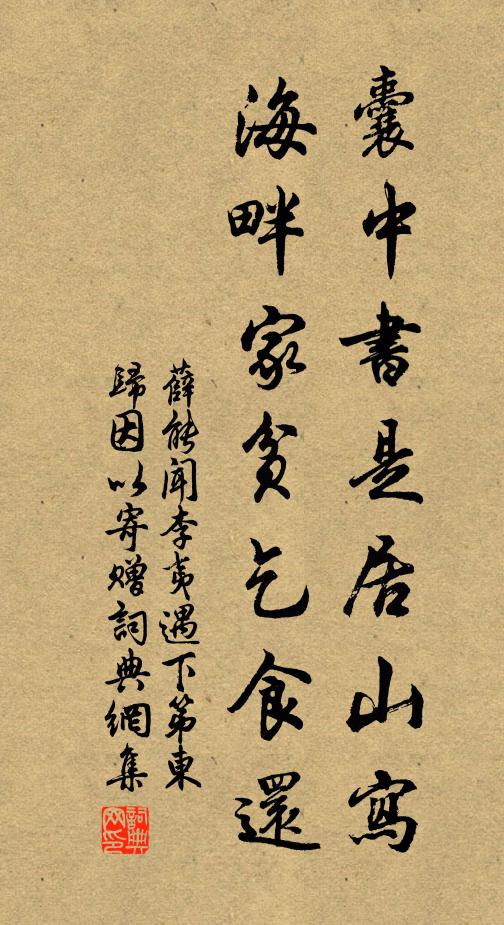 囊中書是居山寫
海畔家貧乞食還
薛能聞李夷遇下第東
歸因以寄贈詞典網集
詞典網印